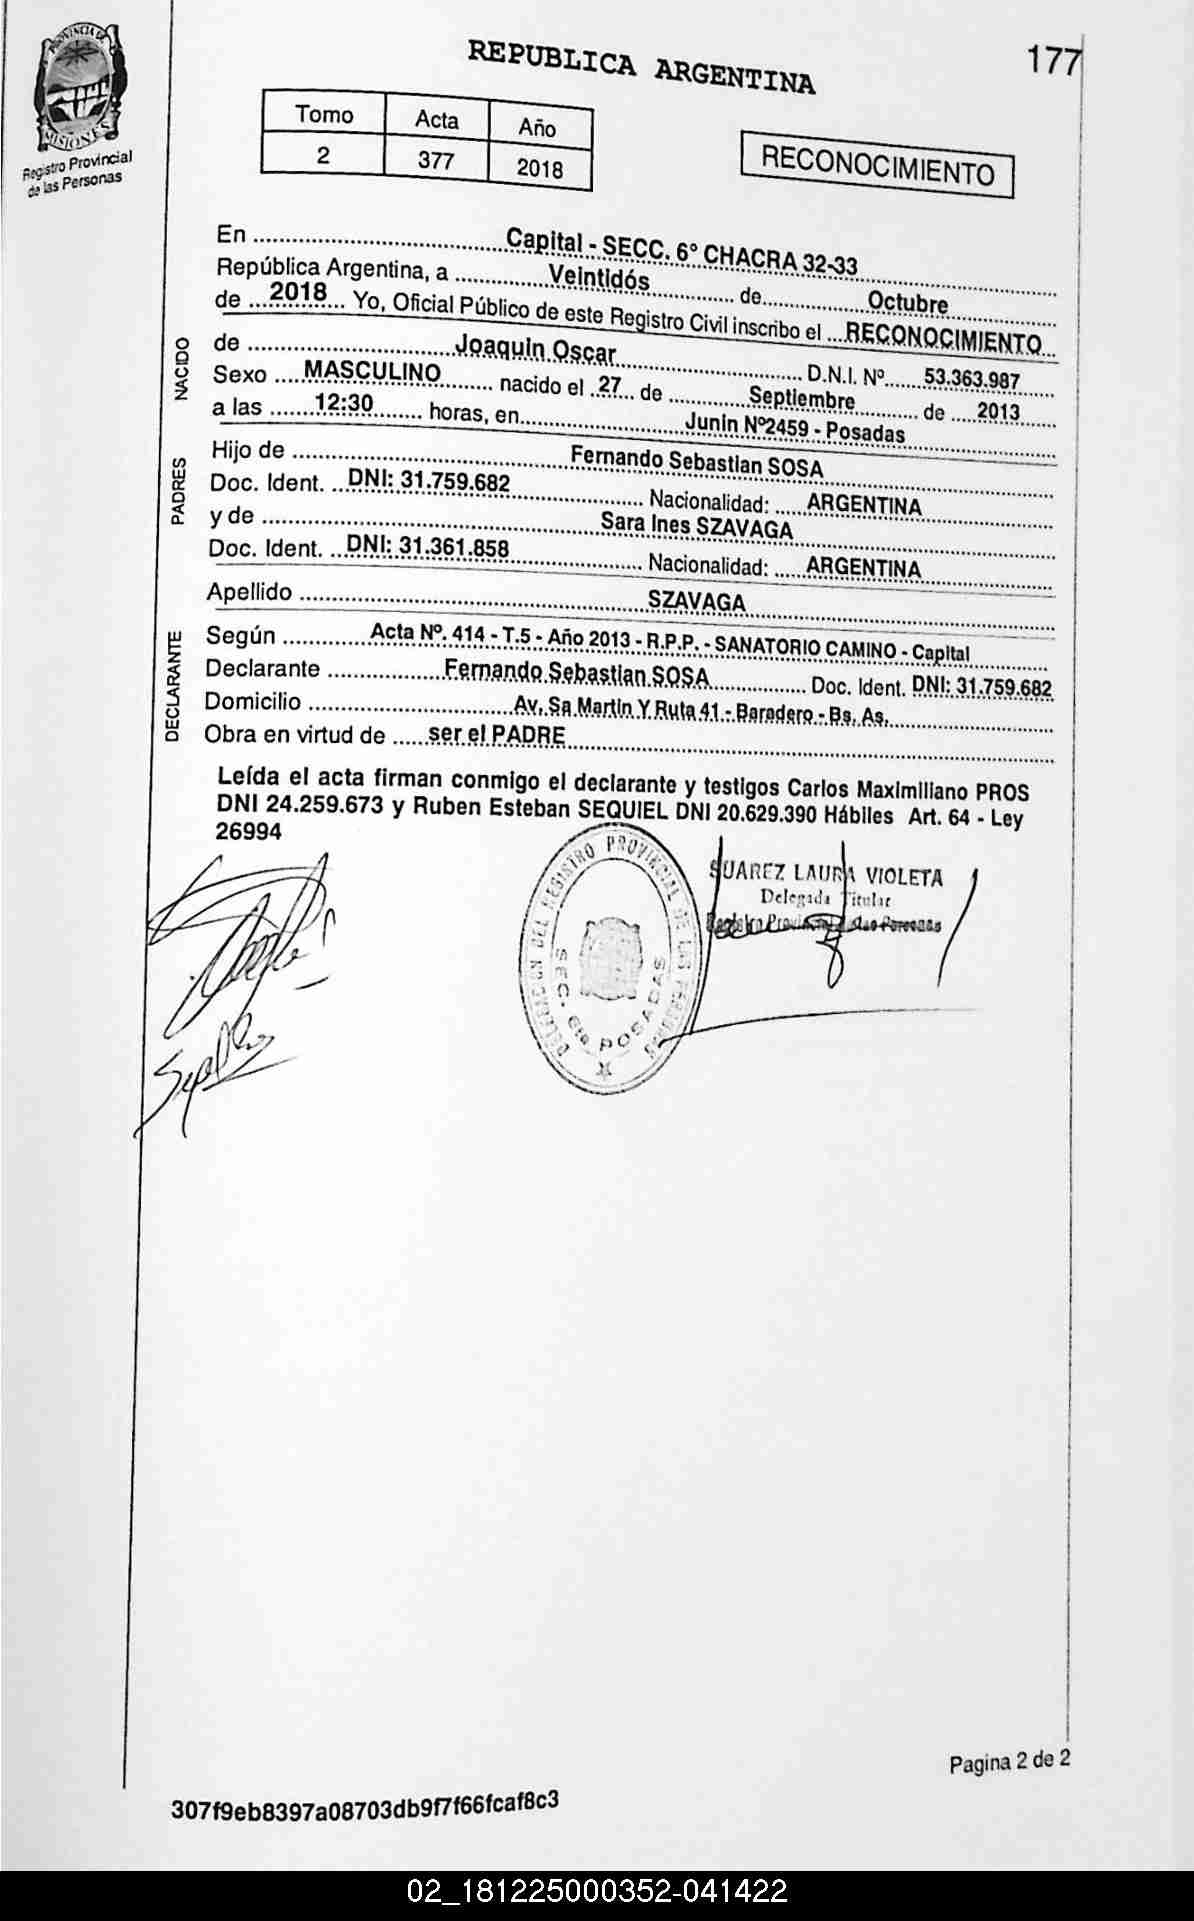 PROVINCIA DE
MISIONES
Registro Provincial
de las Personas
REPUBLICA ARGENTINA
177
Tomo Acta Año
2 377 2018
RECONOCIMIENTO
En ........ Capital - SECC. 6° CHACRA 32-33 ........
República Argentina, a ........ Veintidós ........ de ........ Octubre ........
de ... 2018 ... Yo, Oficial Público de este Registro Civil inscribo el ... RECONOCIMIENTO ...
NACIDO
de ........ Joaquin Oscar ........ D.N.I. Nº ...... 53.363.987 ......
Sexo .... MASCULINO ........ nacido el .. 27 ... de ........ Septiembre ........ de .... 2013 ......
a las ....... 12:30 ........ horas, en ........ Junin Nº2459 - Posadas ........
PADRES
Hijo de ........ Fernando Sebastian SOSA ........
Doc. Ident. ... DNI: 31.759.682 ........ Nacionalidad: ..... ARGENTINA ........
y de ........ Sara Ines SZAVAGA ........
Doc. Ident. ... DNI: 31.361.858 ........ Nacionalidad: ..... ARGENTINA ........
Apellido ........ SZAVAGA ........
DECLARANTE
Según ........ Acta Nº. 414 - T.5 - Año 2013 - R.P.P. - SANATORIO CAMINO - Capital ........
Declarante ........ Fernando Sebastian SOSA ........ Doc. Ident. DNI: 31.759.682
Domicilio ........ Av. Sa Martin Y Ruta 41 - Baradero - Bs. As. ........
Obra en virtud de ...... ser el PADRE ........
Leída el acta firman conmigo el declarante y testigos Carlos Maximiliano PROS
DNI 24.259.673 y Ruben Esteban SEQUIEL DNI 20.629.390 Hábiles Art. 64 - Ley
26994
DELEGACION DEL REGISTRO PROVINCIAL DE LAS PERSONAS
SEC. 6ta POSADAS
SUAREZ LAURA VIOLETA
Delegada Titular
Registro Provincial de las Personas
Pagina 2 de 2
307f9eb8397a08703db9f7f66fcaf8c3
02_181225000352-041422